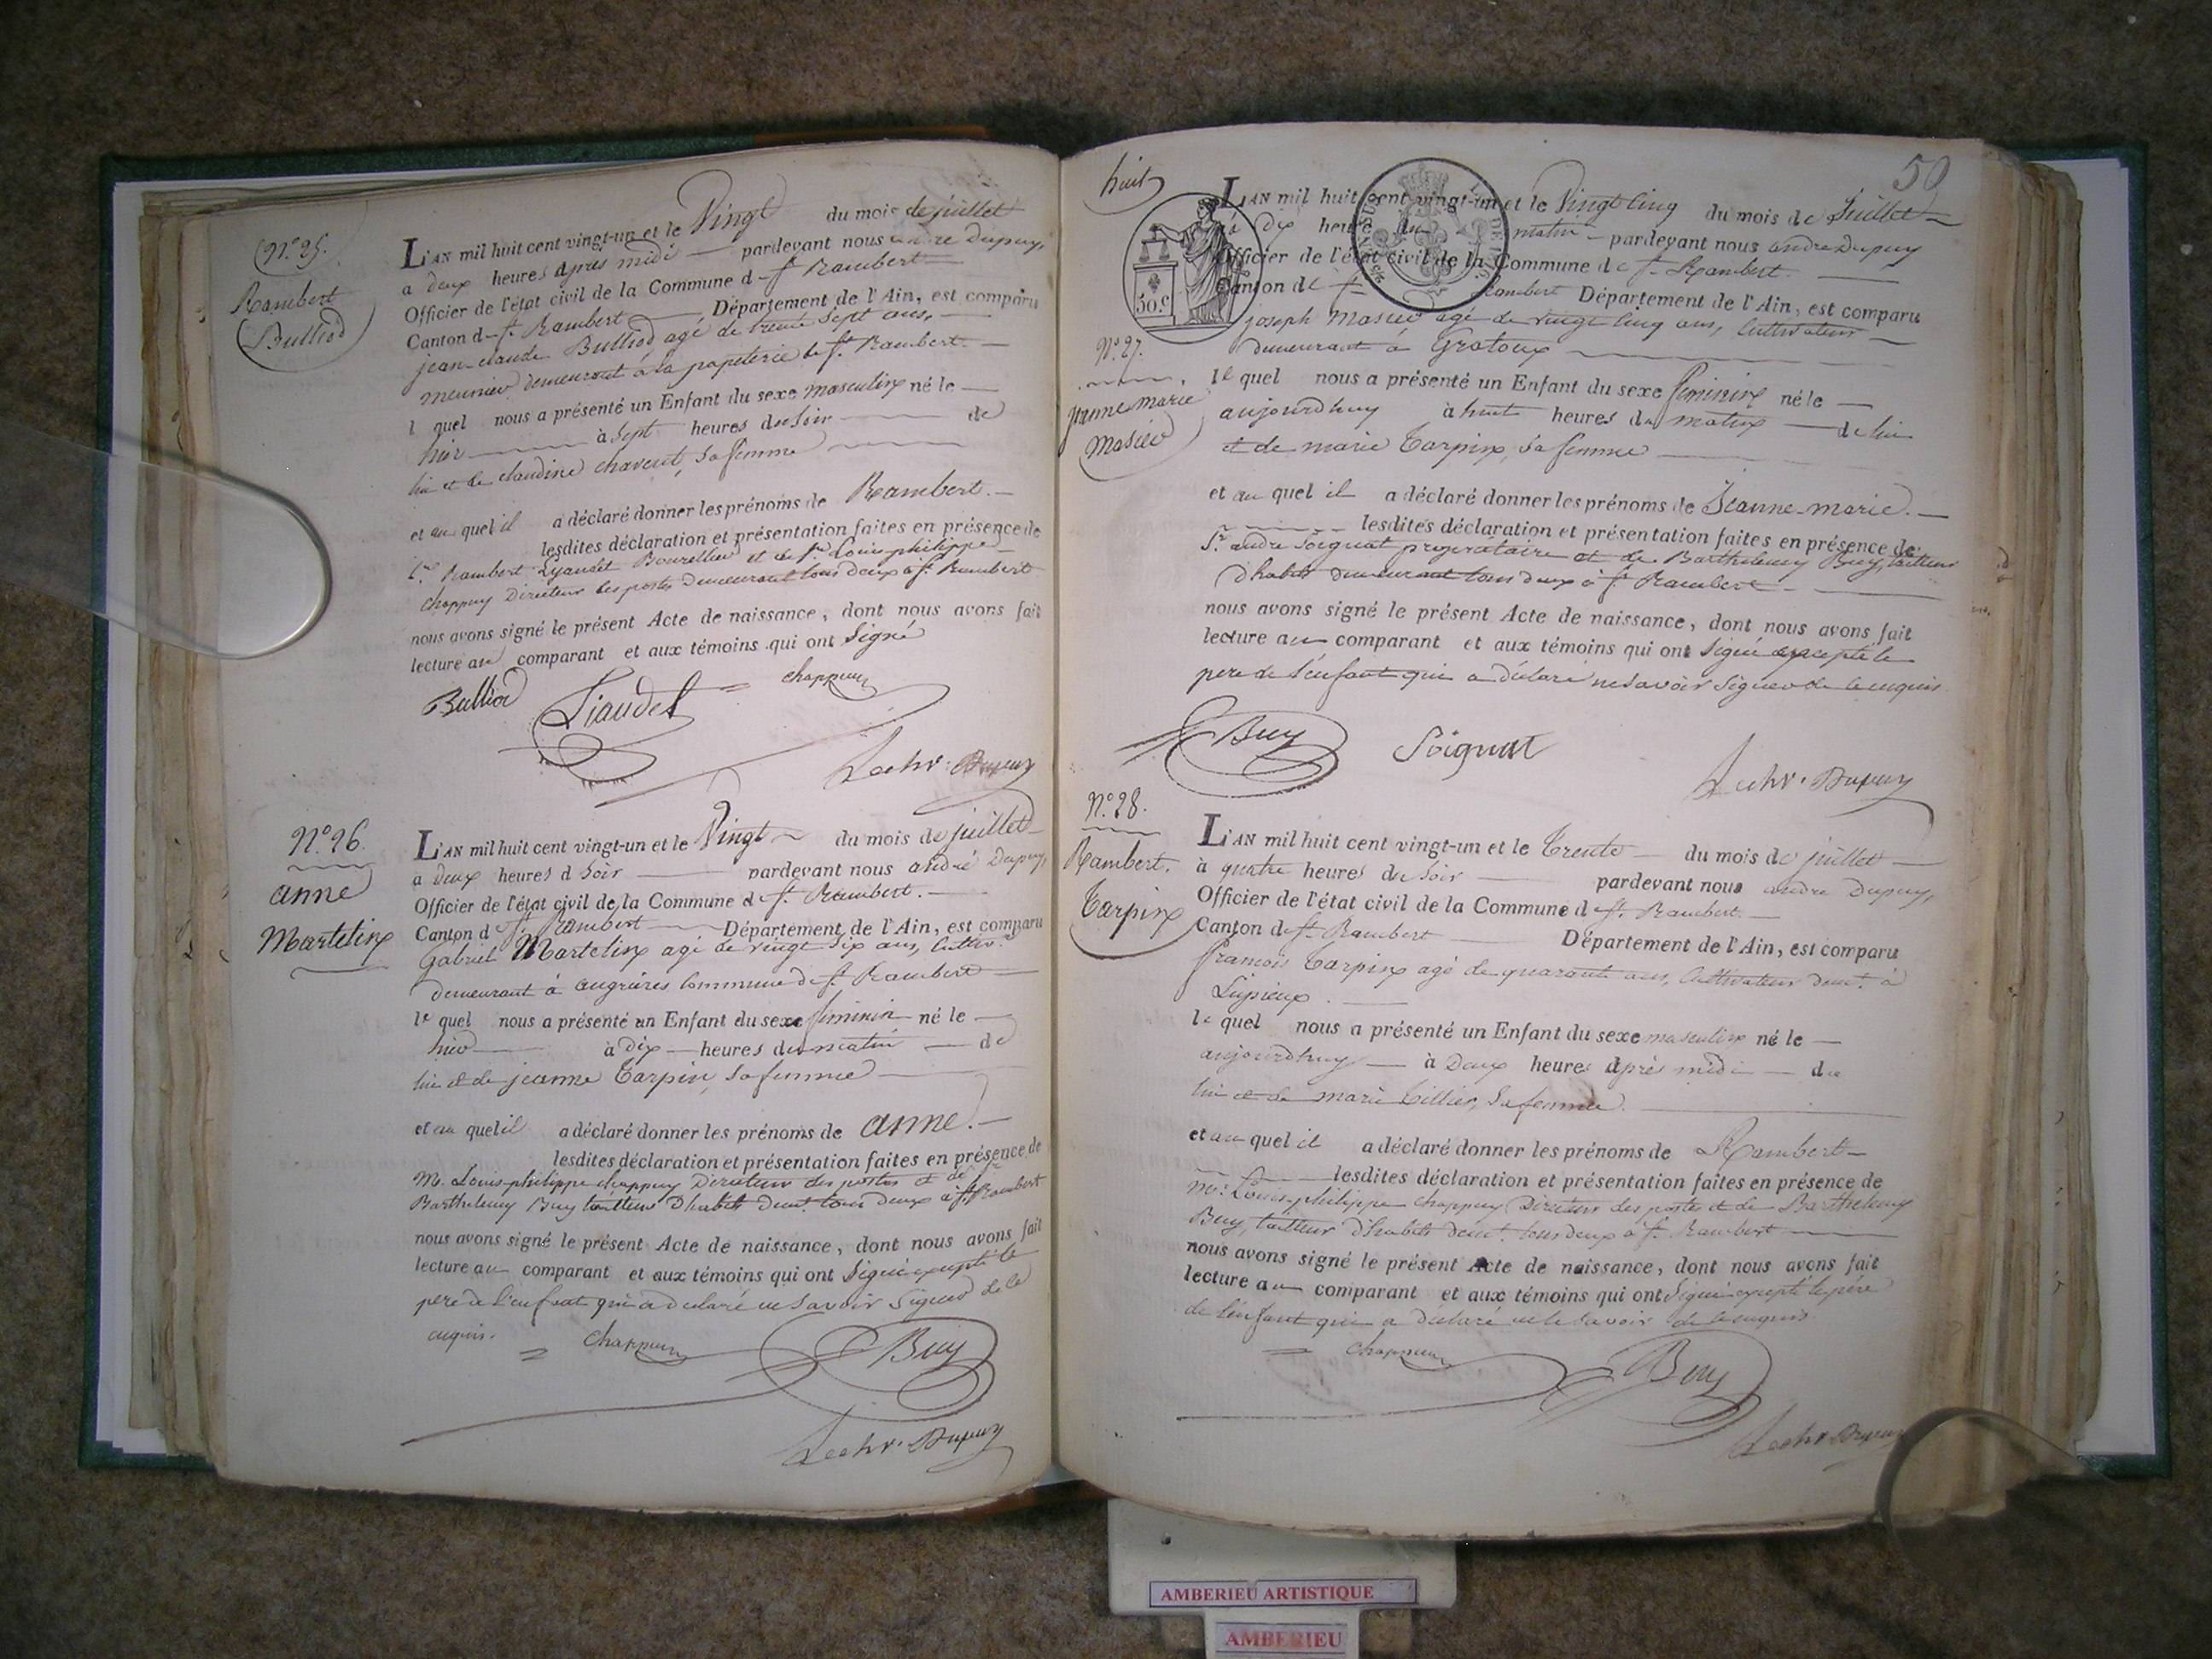 N.º 25.
Rambert
Bulliod
L'AN mil huit cent vingt-un et le Vingt du mois de juillet
a deux heures après midi pardevant nous andre dupuy,
Officier de l'état civil de la Commune d St. Rambert
Canton d St. Rambert Département de l'Ain, est comparu
jean-claude Bulliod agé de trente sept ans,
meunier demeurant à la papeterie de St. Rambert.
l quel nous a présenté un Enfant du sexe masculin né le
hier à Sept heures du Soir de
lui et de claudine chavent, sa femme
et au quel il a déclaré donner les prénoms de Rambert.
lesdites déclaration et présentation faites en présence de
Rambert Lyaudet Bourrelier et de Sr. Louis philippe
chappuy Directeur des postes demeurant tous deux à St. Rambert
nous avons signé le présent Acte de naissance, dont nous avons fait
lecture au comparant et aux témoins qui ont Signé
Bulliod Liaudet chappuy
Dupuy
N.º 26.
anne
Martelin
L'AN mil huit cent vingt-un et le Vingt du mois de juillet
a deux heures d Soir pardevant nous andré Dupuy,
Officier de l'état civil de la Commune d St. Rambert.
Canton d St. Rambert Département de l'Ain, est comparu
Gabriel Martelin agé de vingt Six ans, cultiv.r
demeurant à angrières Commune de St. Rambert
le quel nous a présenté un Enfant du sexe feminin né le
hier à dix heures du matin de
lui et de jeanne Tarpin, sa femme
et au quel il a déclaré donner les prénoms de anne.
lesdites déclaration et présentation faites en présence de
M. Louis philippe chappuy Directeur des postes et de
Barthelemy Buy tailleur D'habits demt. tous deux à St. Rambert
nous avons signé le présent Acte de naissance, dont nous avons fait
lecture au comparant et aux témoins qui ont Signé excepté le
pere de l'enfant qui a déclaré ne savoir Signer de ce
enquis.
chappuy Buy
Dupuy
huit
50
50.c
N.º 27.
jeanne marie
Masier
L'AN mil huit cent vingt-un et le Vingt Cinq du mois de Juillet
à dix heures du matin pardevant nous andre Dupuy
Officier de l'état civil de la Commune de St. Rambert.
Canton de St. Rambert Département de l'Ain, est comparu
joseph Masier agé de vingt cinq ans, Cultivateur
demeurant à Gratoux
le quel nous a présenté un Enfant du sexe feminin né le
aujourdhuy à huit heures du matin de lui
et de marie Tarpin, sa femme
et au quel il a déclaré donner les prénoms de Jeanne-marie.
lesdites déclaration et présentation faites en présence de
Sr. andre Soignat propriétaire et de Barthelemy Buy, tailleur
D'habits demeurant tous deux à St. Rambert
nous avons signé le présent Acte de naissance, dont nous avons fait
lecture au comparant et aux témoins qui ont Signé excepté le
pere de l'enfant qui a déclaré ne savoir Signer de ce enquis
Buy Soignat
Dupuy
N.º 28.
Rambert.
Tarpin
L'AN mil huit cent vingt-un et le Trente du mois de juillet
à quatre heures du Soir pardevant nous andre Dupuy,
Officier de l'état civil de la Commune d St. Rambert.
Canton de St. Rambert Département de l'Ain, est comparu
francois Tarpin agé de quarante ans, Cultivateur demt. à
Lupieux.
le quel nous a présenté un Enfant du sexe masculin né le
aujourdhuy à Deux heures après midi de
lui et de marie Tillier, sa femme.
et au quel il a déclaré donner les prénoms de Rambert
lesdites déclaration et présentation faites en présence de
Mr. Louis-philippe chappuy Directeur des postes et de Barthelemy
Buy, tailleur D'habits demt. tous deux à St. Rambert
nous avons signé le présent Acte de naissance, dont nous avons fait
lecture au comparant et aux témoins qui ont Signé excepté le père
de l'enfant qui a déclaré ne le savoir de ce enquis
chappuy Buy
Dupuy
AMBERIEU ARTISTIQUE
AMBERIEU